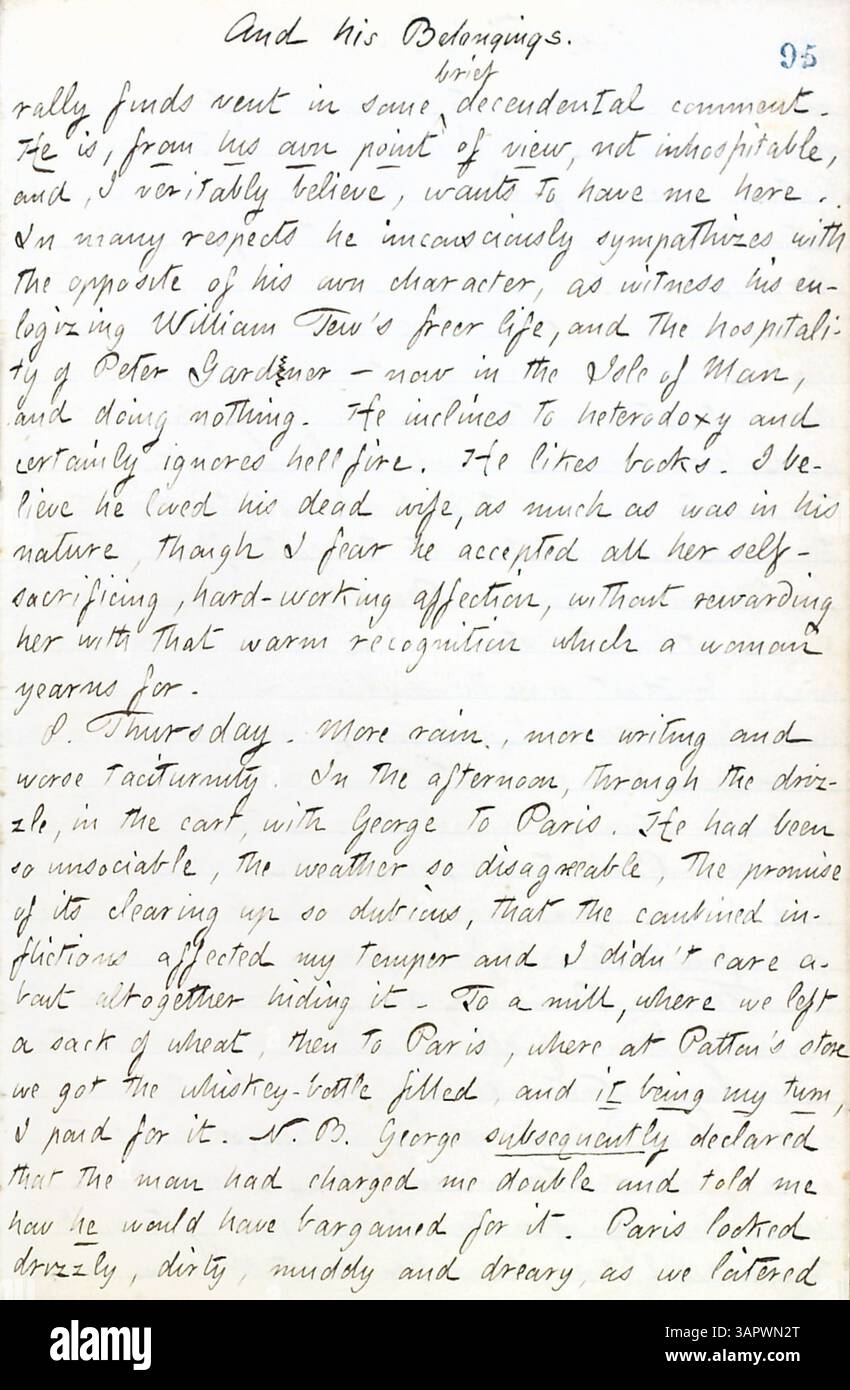 And his Belongings.
95
brief
rally finds vent in some decendental comment.
He is, from his own point of view, not inhospitable,
and, I veritably believe, wants to have me here.
In many respects he unconsciously sympathizes with
the opposite of his own character, as witness his eu-
logizing William Tew's freer life, and the hospitali-
ty of Peter Gardner - now in the Isle of Man,
and doing nothing. He inclines to heterodoxy and
certainly ignores hell fire. He likes books. I be-
lieve he loved his dead wife, as much as was in his
nature, though I fear he accepted all her self-
sacrificing, hard-working affection, without rewarding
her with that warm recognition which a woman
yearns for.
8. Thursday. More rain, more writing and
worse taciturnity. In the afternoon, through the driz-
zle, in the cart, with George to Paris. He had been
so unsociable, the weather so disagreeable, the promise
of its clearing up so dubious, that the combined in-
flictions affected my temper and I didn't care a-
bout altogether hiding it. To a mill, where we left
a sack of wheat, then to Paris, where at Patton's store
we got the whiskey-bottle filled, and it being my turn,
I paid for it. N. B. George subsequently declared
that the man had charged me double and told me
how he would have bargained for it. Paris looked
drizzly, dirty, muddy and dreary, as we loitered
alamy
Image ID: 3APWN2T
www.alamy.com